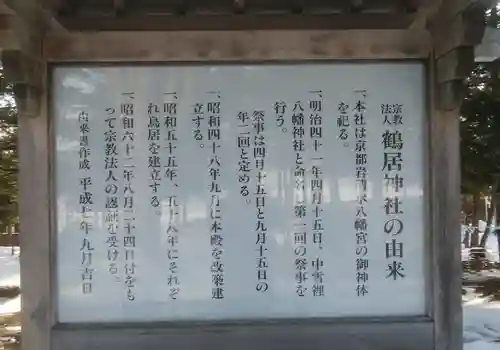 宗教
法人 鶴居神社の由来
一、本社は京都岩清水八幡宮の御神体
を祀る。
一、明治四十一年四月十五日、中雪裡
八幡神社と命名し第一回の祭事を
行う。
祭事は四月十五日と九月十五日の
年二回と定める。
一、昭和四十八年九月に本殿を改築建
立する。
一、昭和五十五年、五十八年にそれぞ
れ鳥居を建立する。
一、昭和六十二年八月二十四日付をも
って宗教法人の認証を受ける。
由来書作成 平成七年九月吉日